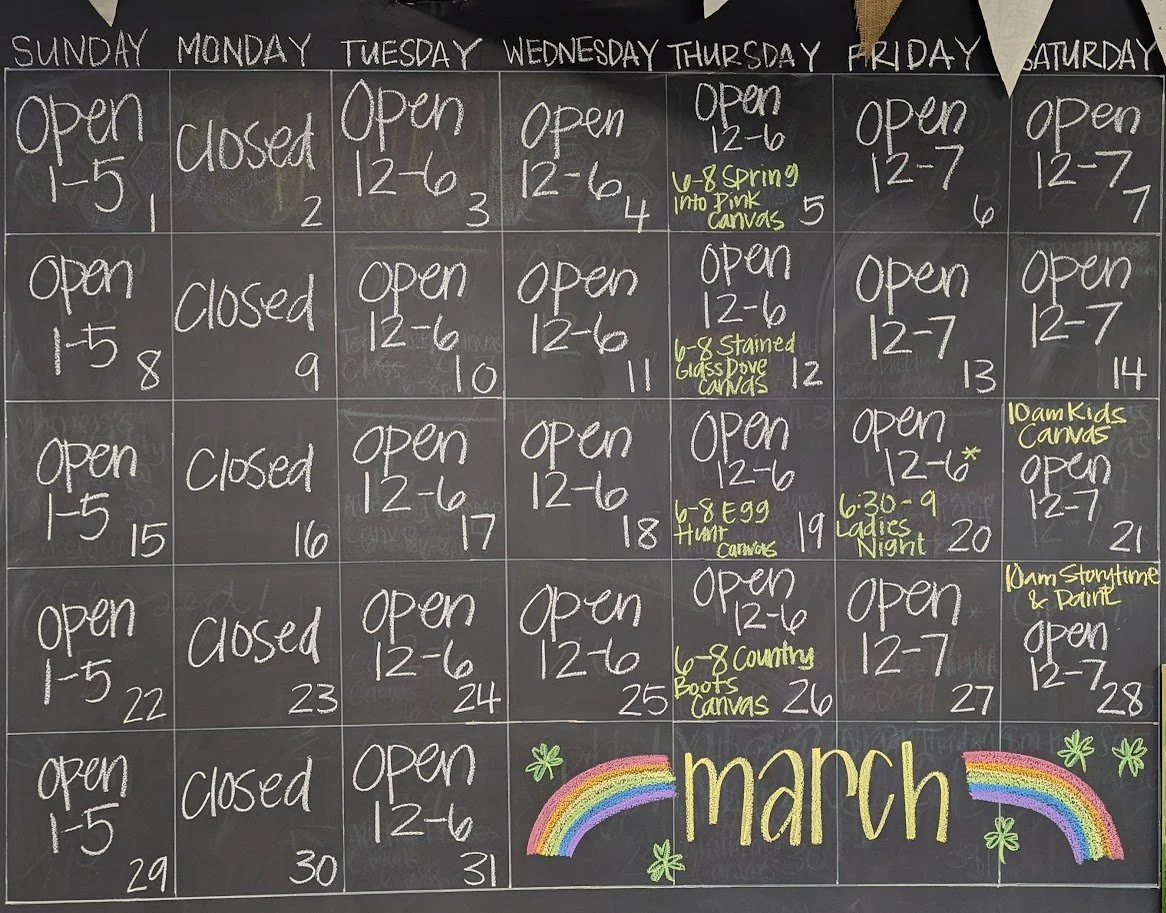 SUNDAY MONDAY TUESDAY WEDNESDAY THURSDAY FRIDAY SATURDAY
Open
1-5
1
Closed
2
Open
12-6
3
Open
12-6
4
Open
12-6
6-8 Spring
Into Pink
Canvas
5
Open
12-7
6
Open
12-7
7
Open
1-5
8
Closed
9
Open
12-6
10
Open
12-6
11
Open
12-6
6-8 Stained
Glass Dove
Canvas
12
Open
12-7
13
Open
12-7
14
Open
1-5
15
Closed
16
Open
12-6
17
Open
12-6
18
Open
12-6
6-8 Egg
Hunt
Canvas
19
Open
12-6*
6:30-9
Ladies
Night
20
10am Kids
Canvas
Open
12-7
21
Open
1-5
22
Closed
23
Open
12-6
24
Open
12-6
25
Open
12-6
6-8 Country
Boots
Canvas
26
Open
12-7
27
10am Storytime
& Paint
Open
12-7
28
Open
1-5
29
Closed
30
Open
12-6
31
march